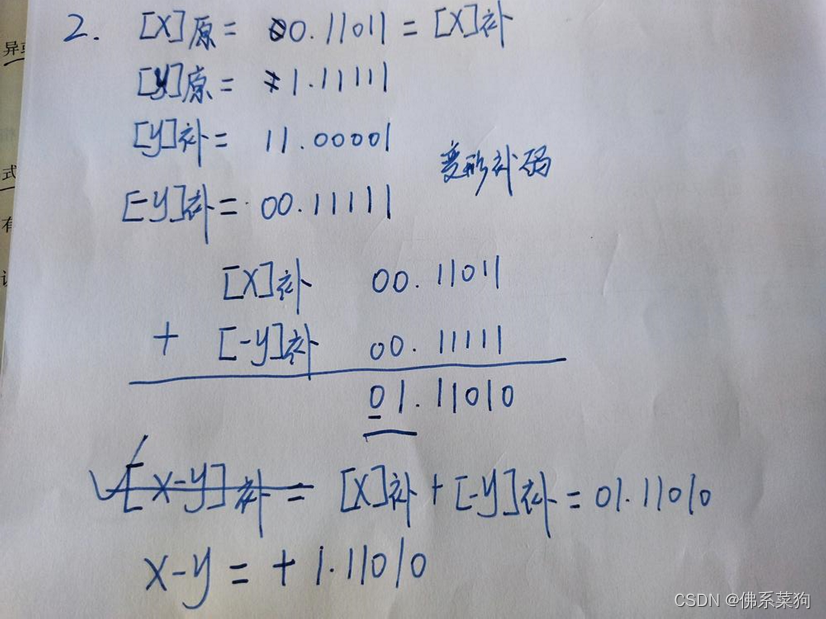 2. [X]原 = 00.11011 = [X]补
[y]原 = 1.11111
[y]补 = 11.00001
变形补码
[-y]补 = 00.11111
[X]补 00.11011
+ [-y]补 00.11111
01.11010
[x-y]补 = [X]补 + [-y]补 = 01.11010
x-y = +1.11010
异
式
有
CSDN @佛系菜狗